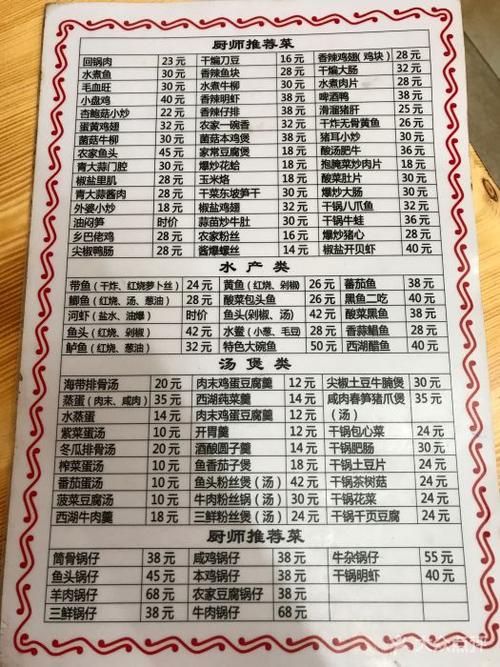 厨师推荐菜
回锅肉 23 元 干煸刀豆 16 元 香辣鸡翅(鸡块) 28 元
水煮鱼 30 元 香辣鱼块 28 元 干煸大肠 32 元
毛血旺 30 元 水煮牛柳 30 元 水煮肉片 28 元
小盘鸡 40 元 香辣明虾 38 元 啤酒鸭 38 元
杏鲍菇小炒 22 元 香辣仔排 38 元 滑溜猪肝 25 元
蛋黄鸡翅 32 元 农家一碗香 32 元 干炸无骨黄鱼 28 元
菌菇牛柳 30 元 菌菇本鸡煲 38 元 猪耳小炒 30 元
农家鱼头 45 元 家常豆腐煲 18 元 酸汤肥牛 36 元
青大蒜门腔 30 元 爆炒花蛤 30 元 抱腌菜炒肉片 18 元
椒盐里肌 28 元 玉米烙 18 元 酸菜肚片 30 元
青大蒜酱肉 30 元 干菜东坡笋干 30 元 爆炒大肠 30 元
外婆小炒 18 元 椒盐鸡翅 32 元 干锅八爪鱼 32 元
油焖笋 时价 蒜苗炒牛肚 30 元 干锅牛蛙 36 元
乡巴佬鸡 28 元 农家粉丝 14 元 爆炒猪心 28 元
尖椒鸭肠 28 元 酱爆螺丝 14 元 椒盐开贝虾 40 元
水产类
带鱼(干炸、红烧萝卜丝) 24 元 黄鱼(红烧、剁椒) 26 元 蕃茄鱼 38 元
鲫鱼(红烧、汤、葱油) 28 元 酸菜包头鱼 26 元 黑鱼二吃 40 元
河虾(盐水、油爆) 时价 鱼头(剁椒、汤) 42 元 酸菜黑鱼 38 元
鱼头(红烧、剁椒) 42 元 水鲞(小葱、毛豆) 28 元 香蒜鲳鱼 28 元
鲈鱼(红烧、葱油) 32 元 特色大碗鱼 50 元 西湖醋鱼 40 元
汤煲类
海带排骨汤 20 元 肉末鸡蛋豆腐羹 12 元 尖椒土豆牛腩煲 30 元
蒸蛋(肉末、咸肉) 35 元 西湖莼菜羹 14 元 咸肉春笋猪爪煲 35 元
水蒸蛋 14 元 肉末鸡蛋豆腐羹 12 元 (汤)
紫菜蛋汤 10 元 开胃羹 14 元 干锅包心菜 24 元
冬瓜排骨汤 20 元 酒酿圆子羹 14 元 干锅肥肠 30 元
榨菜蛋汤 10 元 鱼香茄子煲 18 元 干锅土豆片 24 元
番茄蛋汤 10 元 鱼头粉丝煲(汤) 42 元 干锅茶树菇 24 元
菠菜豆腐汤 10 元 牛肉粉丝锅(汤) 30 元 干锅花菜 24 元
西湖牛肉羹 18 元 三鲜粉丝煲(汤) 24 元 干锅千页豆腐 24 元
厨师推荐菜
筒骨锅仔 38 元 咸鸡锅仔 38 元 牛杂锅仔 55 元
鱼头锅仔 45 元 本鸡锅仔 38 元 干锅明虾 40 元
羊肉锅仔 68 元 农家豆腐锅仔 38 元
三鲜锅仔 38 元 牛肉锅仔 68 元
大众点评